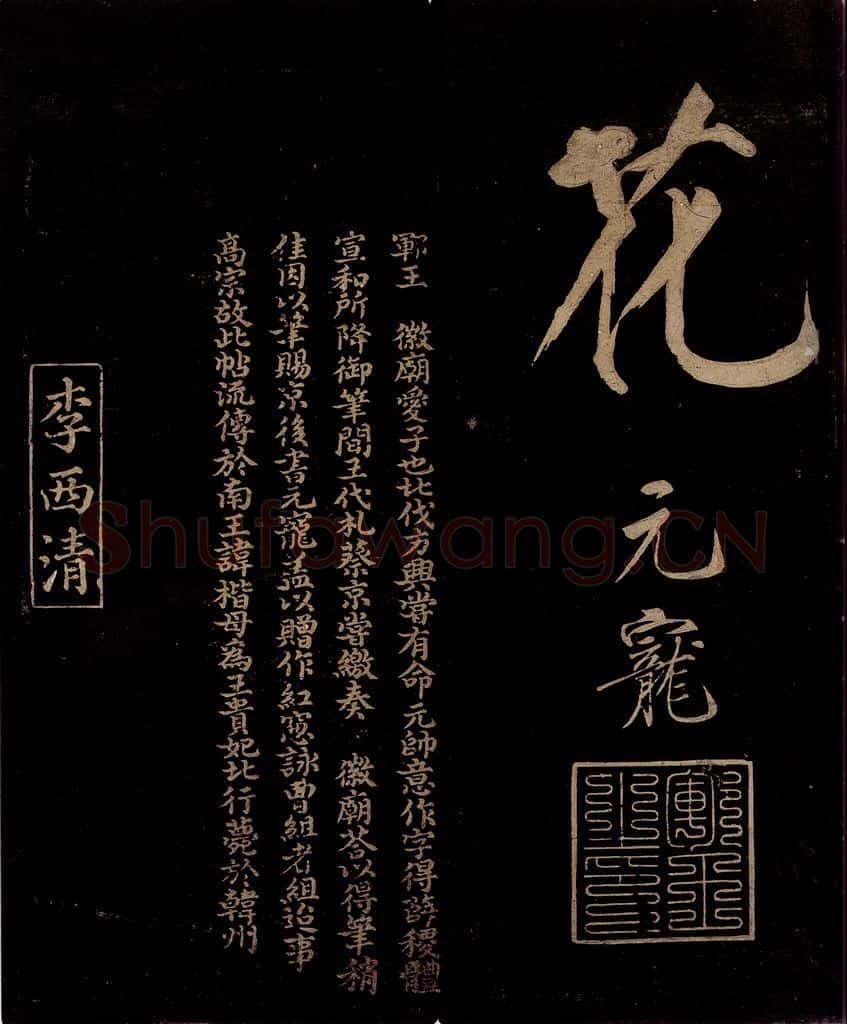 花
元寵
鄆王　徽廟愛子也北伐方興嘗有命元帥意作字得薛稷體
宣和所降御筆間王代札蔡京嘗繳奏　徽廟荅以得筆稍
佳因以筆賜京後書元寵盖以贈作紅窻詠曹組者組迨事
高宗故此帖流傳於南王諱楷母為王貴妃北行薨於韓州
李西清
Shufawang.CN